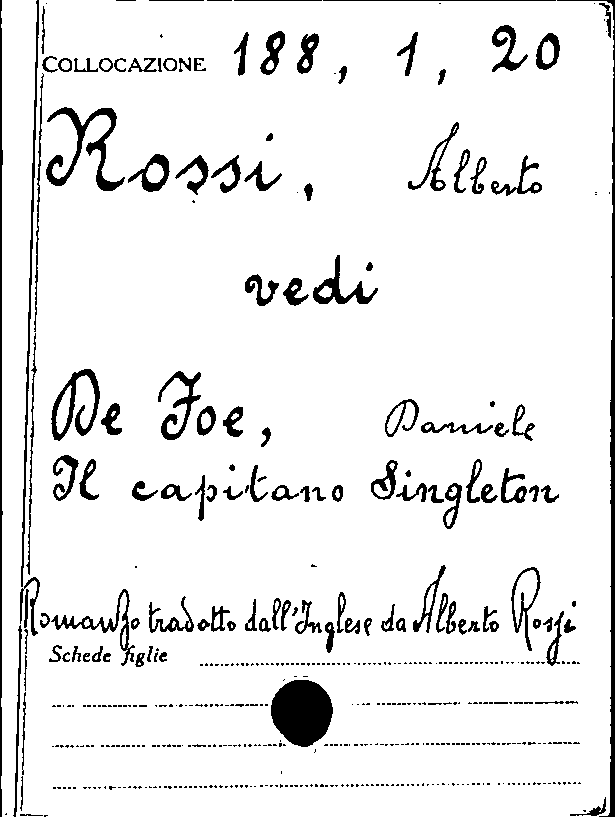 COLLOCAZIONE 188, 1, 20
Rossi, Alberto
vedi
De Foe, Daniele
Il capitano Singleton
Romanzo tradotto dall'Inglese da Alberto Rossi
Schede figlie